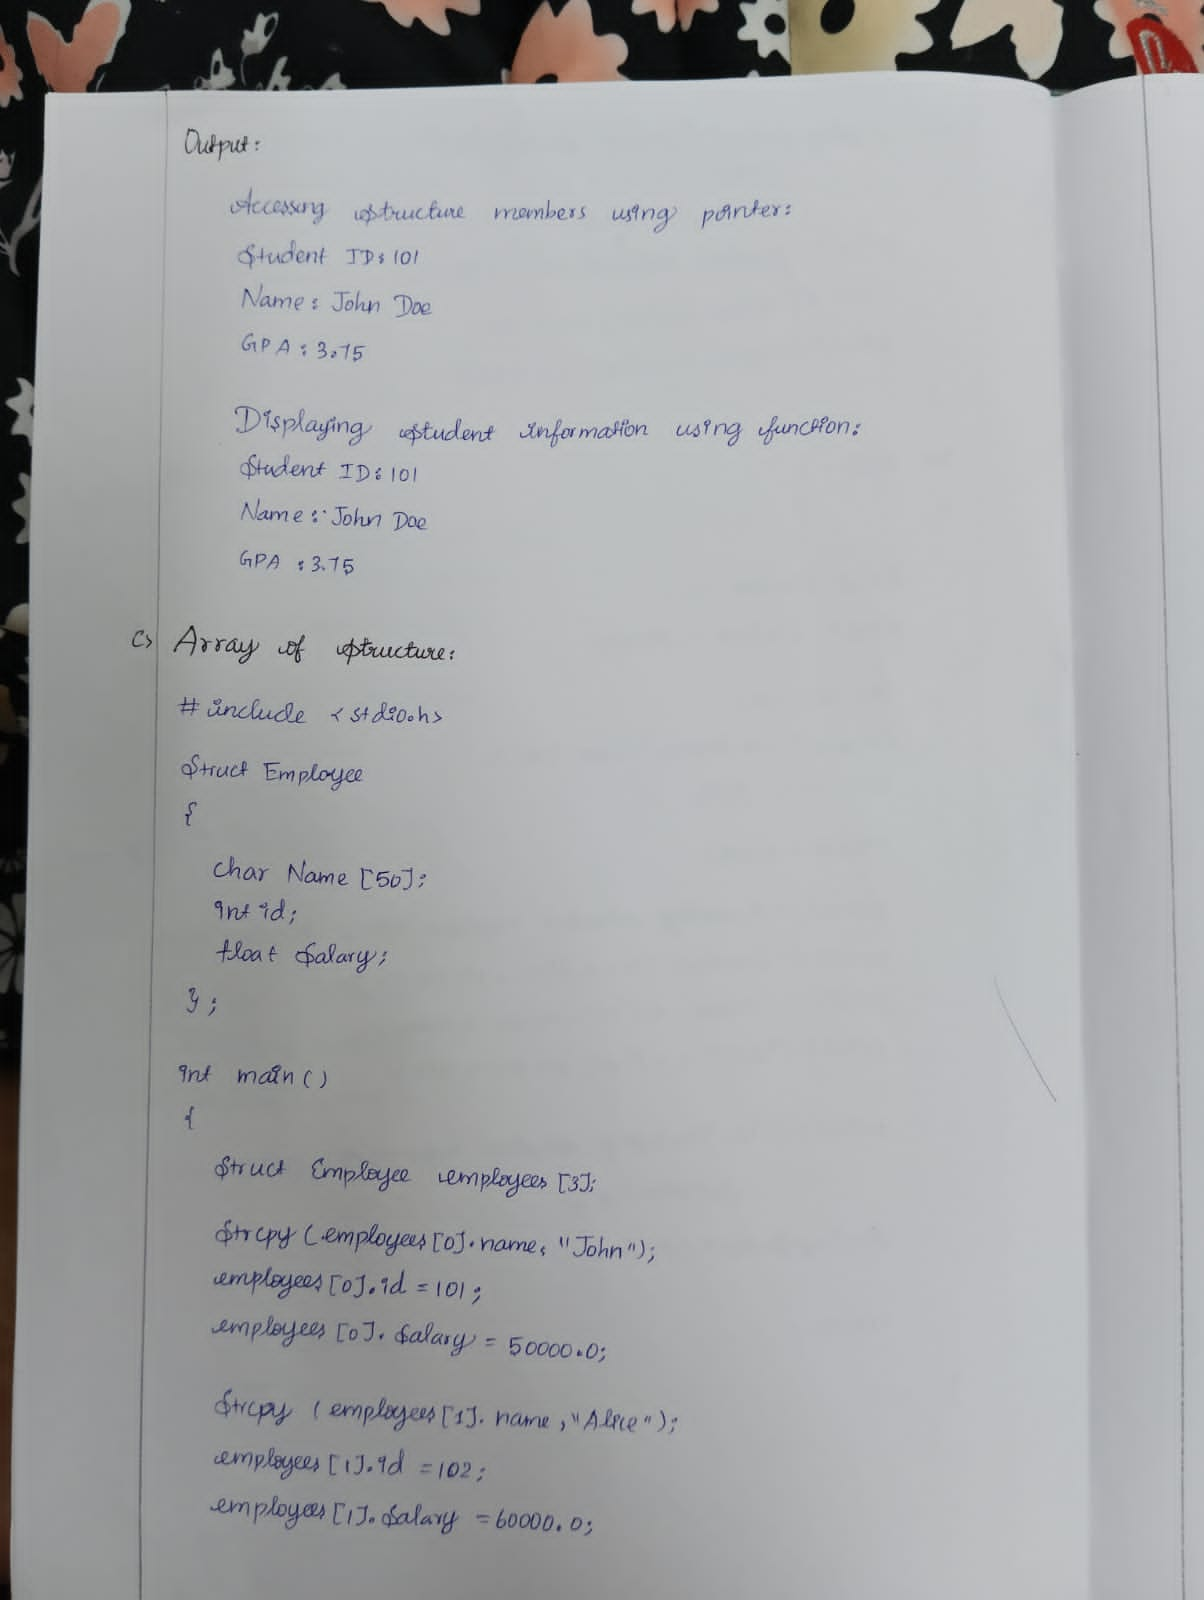 Output:
Accessing structure members using pointer:
Student ID: 101
Name: John Doe
GPA: 3.75
Displaying student information using function:
Student ID: 101
Name: John Doe
GPA: 3.75
C) Array of structure:
#include <stdio.h>
Struct Employee
{
char Name [50];
int id;
float Salary;
};
int main()
{
Struct Employee employees [3];
Strcpy (employees[0].name, "John");
employees[0].id = 101;
employees [0]. Salary = 50000.0;
Strcpy (employees[1]. name, "Alice");
employees [1].id = 102;
employees [1]. Salary = 60000.0;